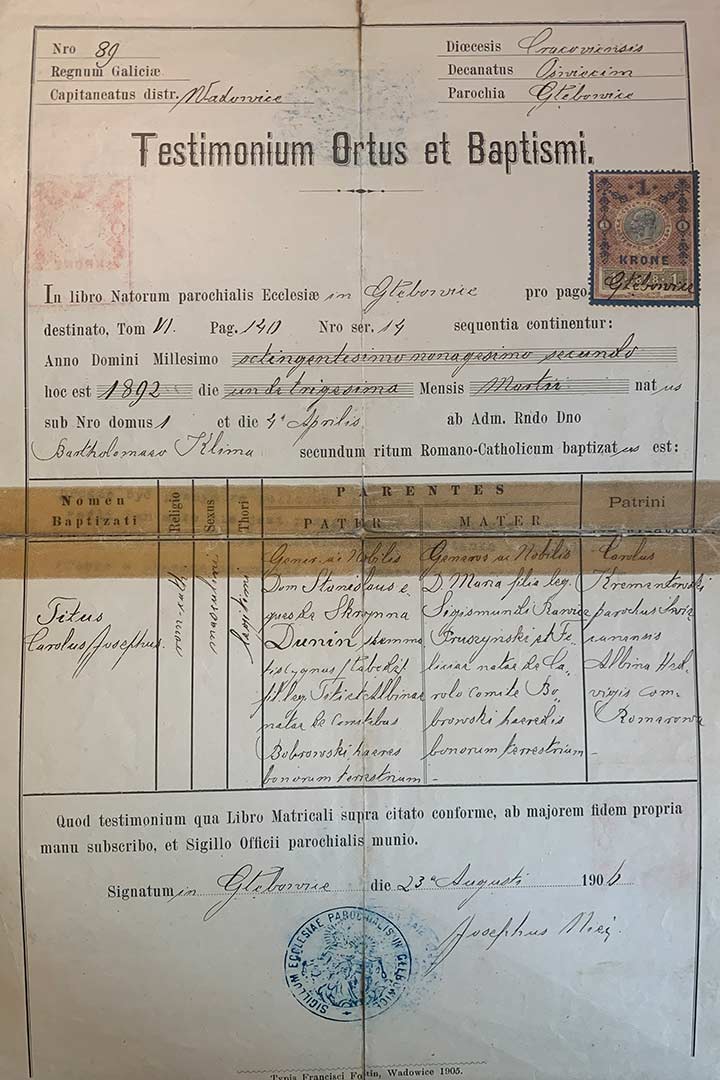 Nro 89
Regnum Galiciæ
Capitaneatus distr. Wadowice
Diœcesis Cracoviensis
Decanatus Oświęcim
Parochia Głębowice
Testimonium Ortus et Baptismi.
1
1 1
KRONE
1
Głębowice
In libro Natorum parochialis Ecclesiæ in Głębowice pro pago
destinato, Tom VI. Pag. 140 Nro ser. 14 sequentia continentur:
Anno Domini Millesimo octingentesimo nonagesimo secundo
hoc est 1892 die undetrigesima Mensis Martii natus
sub Nro domus 1 et die 4a Aprilis ab Adm. Rndo Dno
Bartholomaeo Klima secundum ritum Romano-Catholicum baptizatus est:
Nomen
Baptizati
Religio
Sexus
Thori
PARENTES
PATER
MATER
Patrini
Titus
Carolus Josephus
legitimi
Gener. ac Nobilis
Dom Stanislaus e-
ques de Skrzynna
Dunin
fil. leg. Titi et Albinae
natae de Comitibus
Bobrowski haeres
bonorum terrestrium
Generos ac Nobilis
D. Maria filia leg.
Sigismundi Rawicz
Pruszyński et Fe-
liciae natae de Ca-
rolo Comite Bo-
browski haeredis
bonorum terrestrium
Carolus
parochus
Albina Hed-
vigis com-
Romerowa
Quod testimonium qua Libro Matricali supra citato conforme, ab majorem fidem propria
manu subscribo, et Sigillo Officii parochialis munio.
Signatum in Głębowice die 23a Augusti 1906
Josephus
SIGILLUM ECCLESIAE PAROCHIALIS IN GŁĘBOWICE
Typis Francisci Foltin, Wadowice 1905.